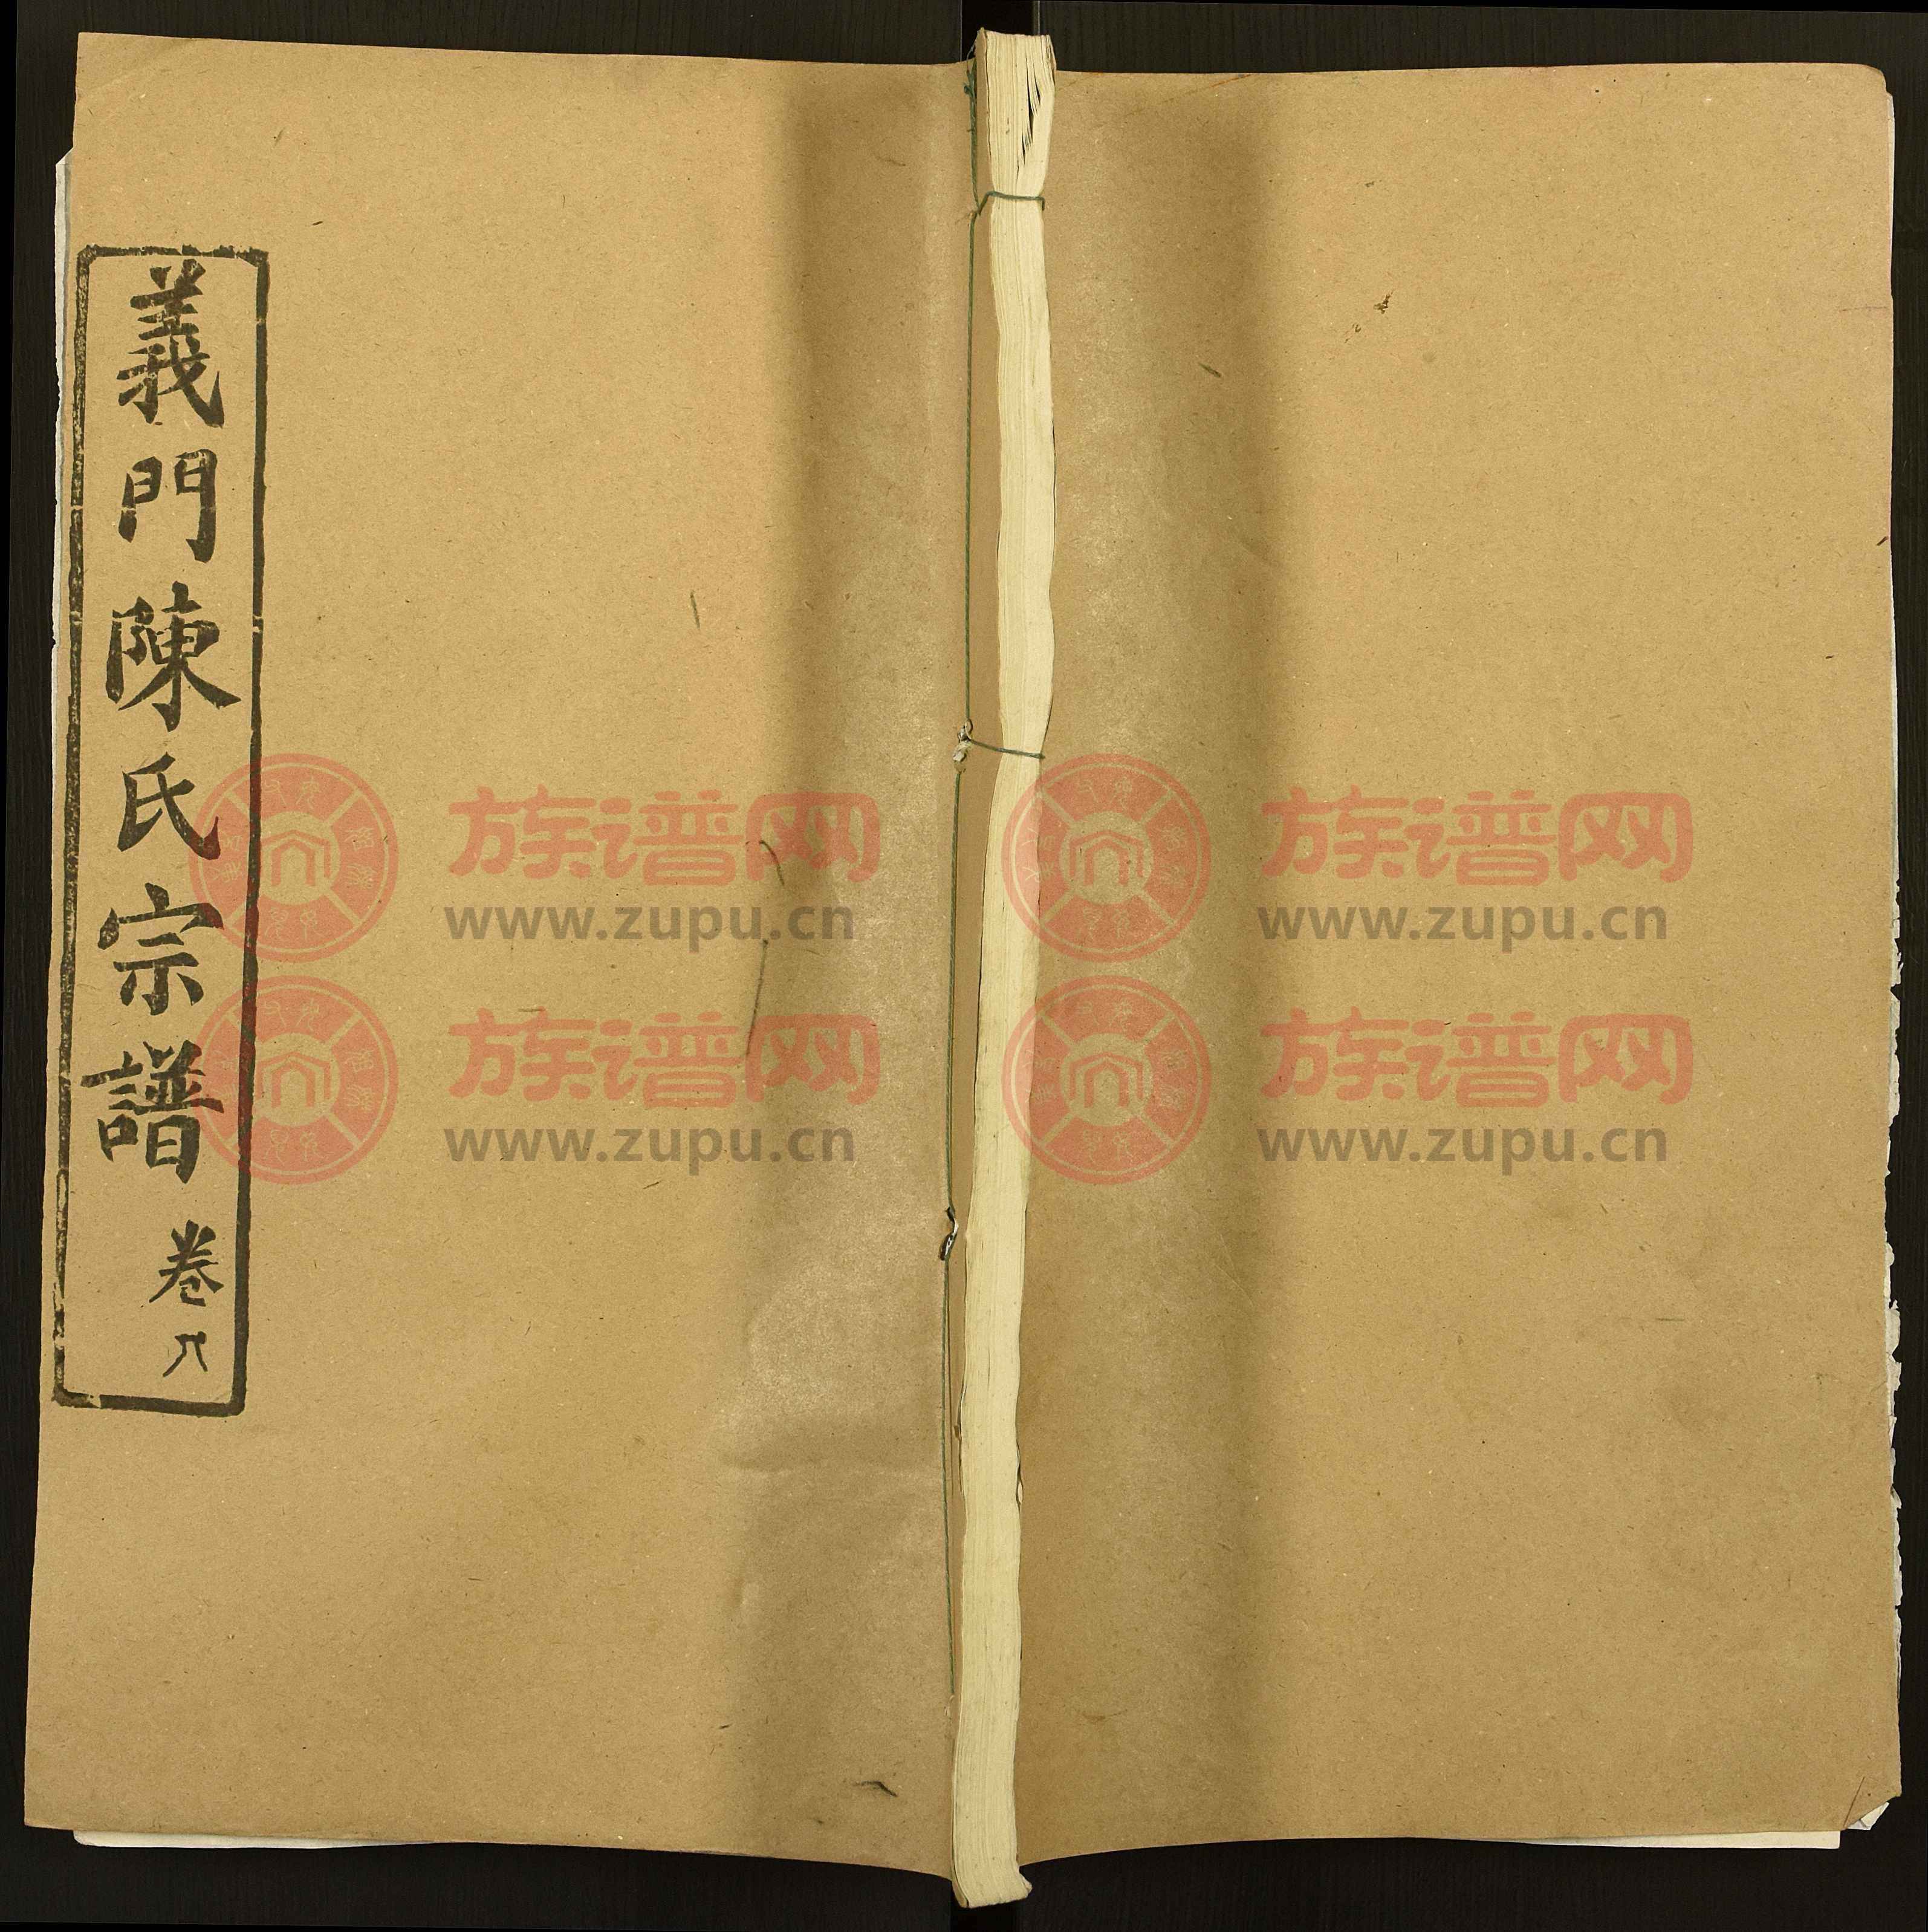 義門陳氏宗譜
卷八
族谱网 族谱网
www.zupu.cn www.zupu.cn
族谱网 族谱网
www.zupu.cn www.zupu.cn